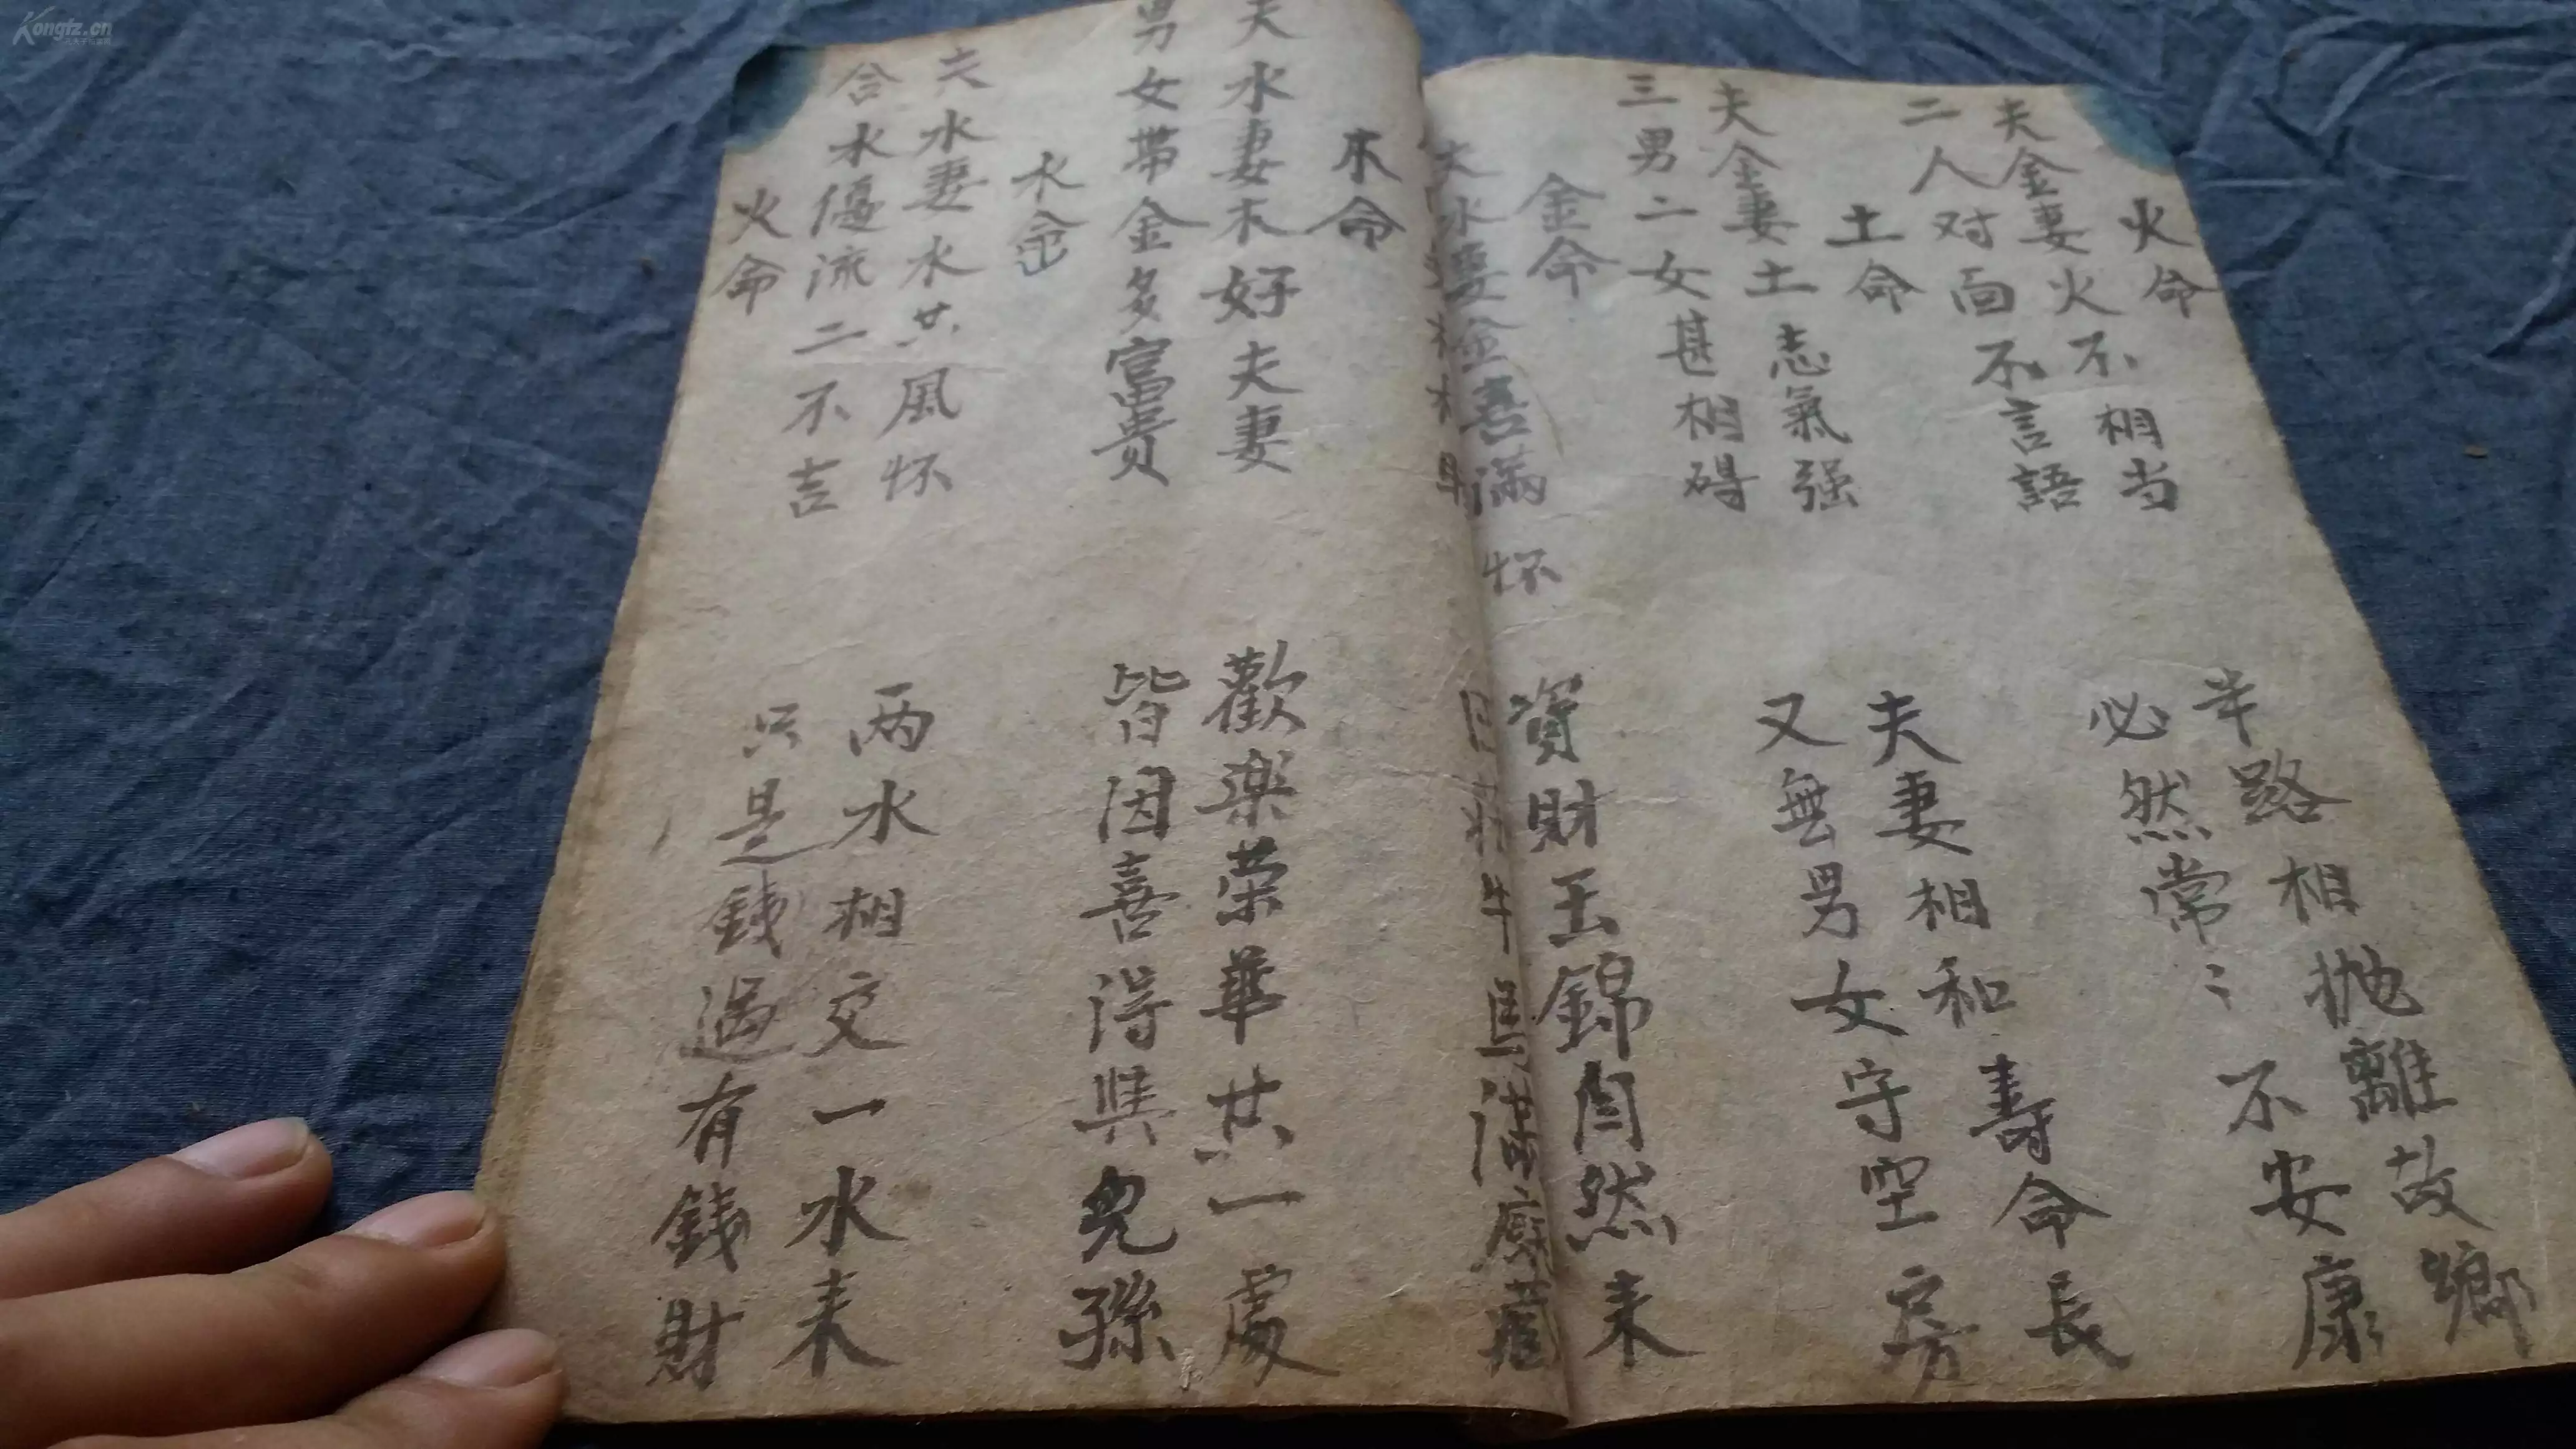 火命
夫金妻火不相当
半路相抛離故鄉
二人对面不言語
必然常々不安康
土命
夫金妻土志氣强
夫妻相和寿命長
三男二女甚相碍
又無男女守空房
金命
夫水妻金喜滿怀
資財玉錦自然来
木命
夫水妻木好夫妻
歡楽荣華共一處
男女带金多富貴
皆因喜得與兒孫
水命
夫水妻水共風怀
两水相交一水来
合水優流二不吉
只是錢過有錢財
火命
Kongfz.cn